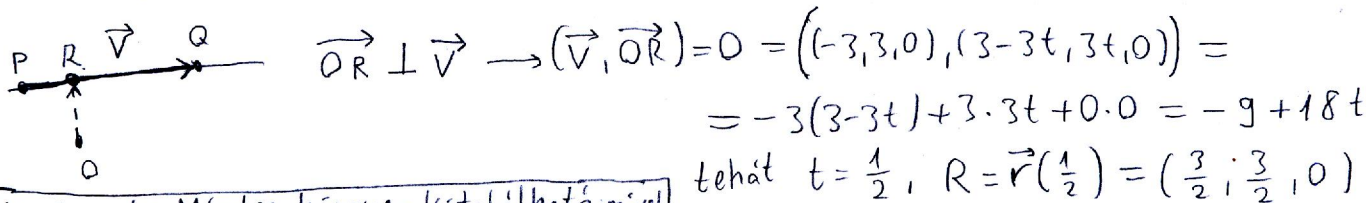 P R V⃗ Q
O
OR⃗ ⊥ V⃗ → (V⃗, OR⃗) = 0 = ((-3,3,0), (3-3t, 3t, 0)) =
= -3(3-3t) + 3·3t + 0·0 = -9 + 18t
tehát t = 1/2, R = r⃗(1/2) = (3/2, 3/2, 0)